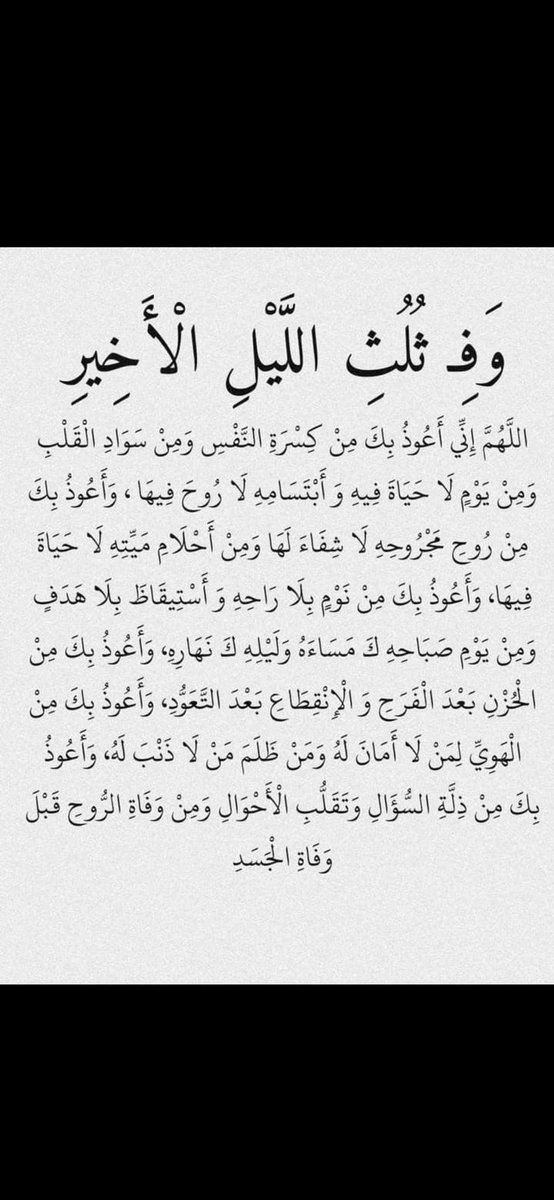 وَفِـ ثُلُثِ اللَّيْلِ الْأَخِيرِ
اللَّهُمَّ إِنِّي أَعُوذُ بِكَ مِنْ كِسْرَةِ النَّفْسِ وَمِنْ سَوَادِ الْقَلْبِ
وَمِنْ يَوْمٍ لَا حَيَاةَ فِيهِ وَ أَبْتَسَامِهِ لَا رُوحَ فِيهَا ، وَأَعُوذُ بِكَ
مِنْ رُوحِ مَجْرُوحِهِ لَا شِفَاءَ لَهَا وَمِنْ أَحْلَامِ مَيِّتِهِ لَا حَيَاةَ
فِيهَا، وَأَعُوذُ بِكَ مِنْ نَوْمٍ بِلَا رَاحِهِ وَ أَسْتِيقَاظَ بِلَا هَدَفٍ
وَمِنْ يَوْمِ صَبَاحِهِ كَ مَسَاءَهُ وَلَيْلِهِ كَ نَهَارِهِ، وَأَعُوذُ بِكَ مِنْ
الْحُزْنِ بَعْدَ الْفَرَحِ وَ الْإِنْقِطَاعِ بَعْدَ التَّعَوُّدِ، وَأَعُوذُ بِكَ مِنْ
الْهَوِيِّ لِمَنْ لَا أَمَانَ لَهُ وَمَنْ ظَلَمَ مَنْ لَا ذَنْبَ لَهُ، وَأَعُوذُ
بِكَ مِنْ ذِلَّةِ السُّؤَالِ وَتَقَلُّبِ الْأَحْوَالِ وَمِنْ وَفَاةِ الرُّوحِ قَبْلَ
وَفَاةِ الْجَسَدِ